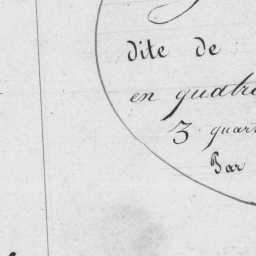 dite de
en quatre
3 quar
Par